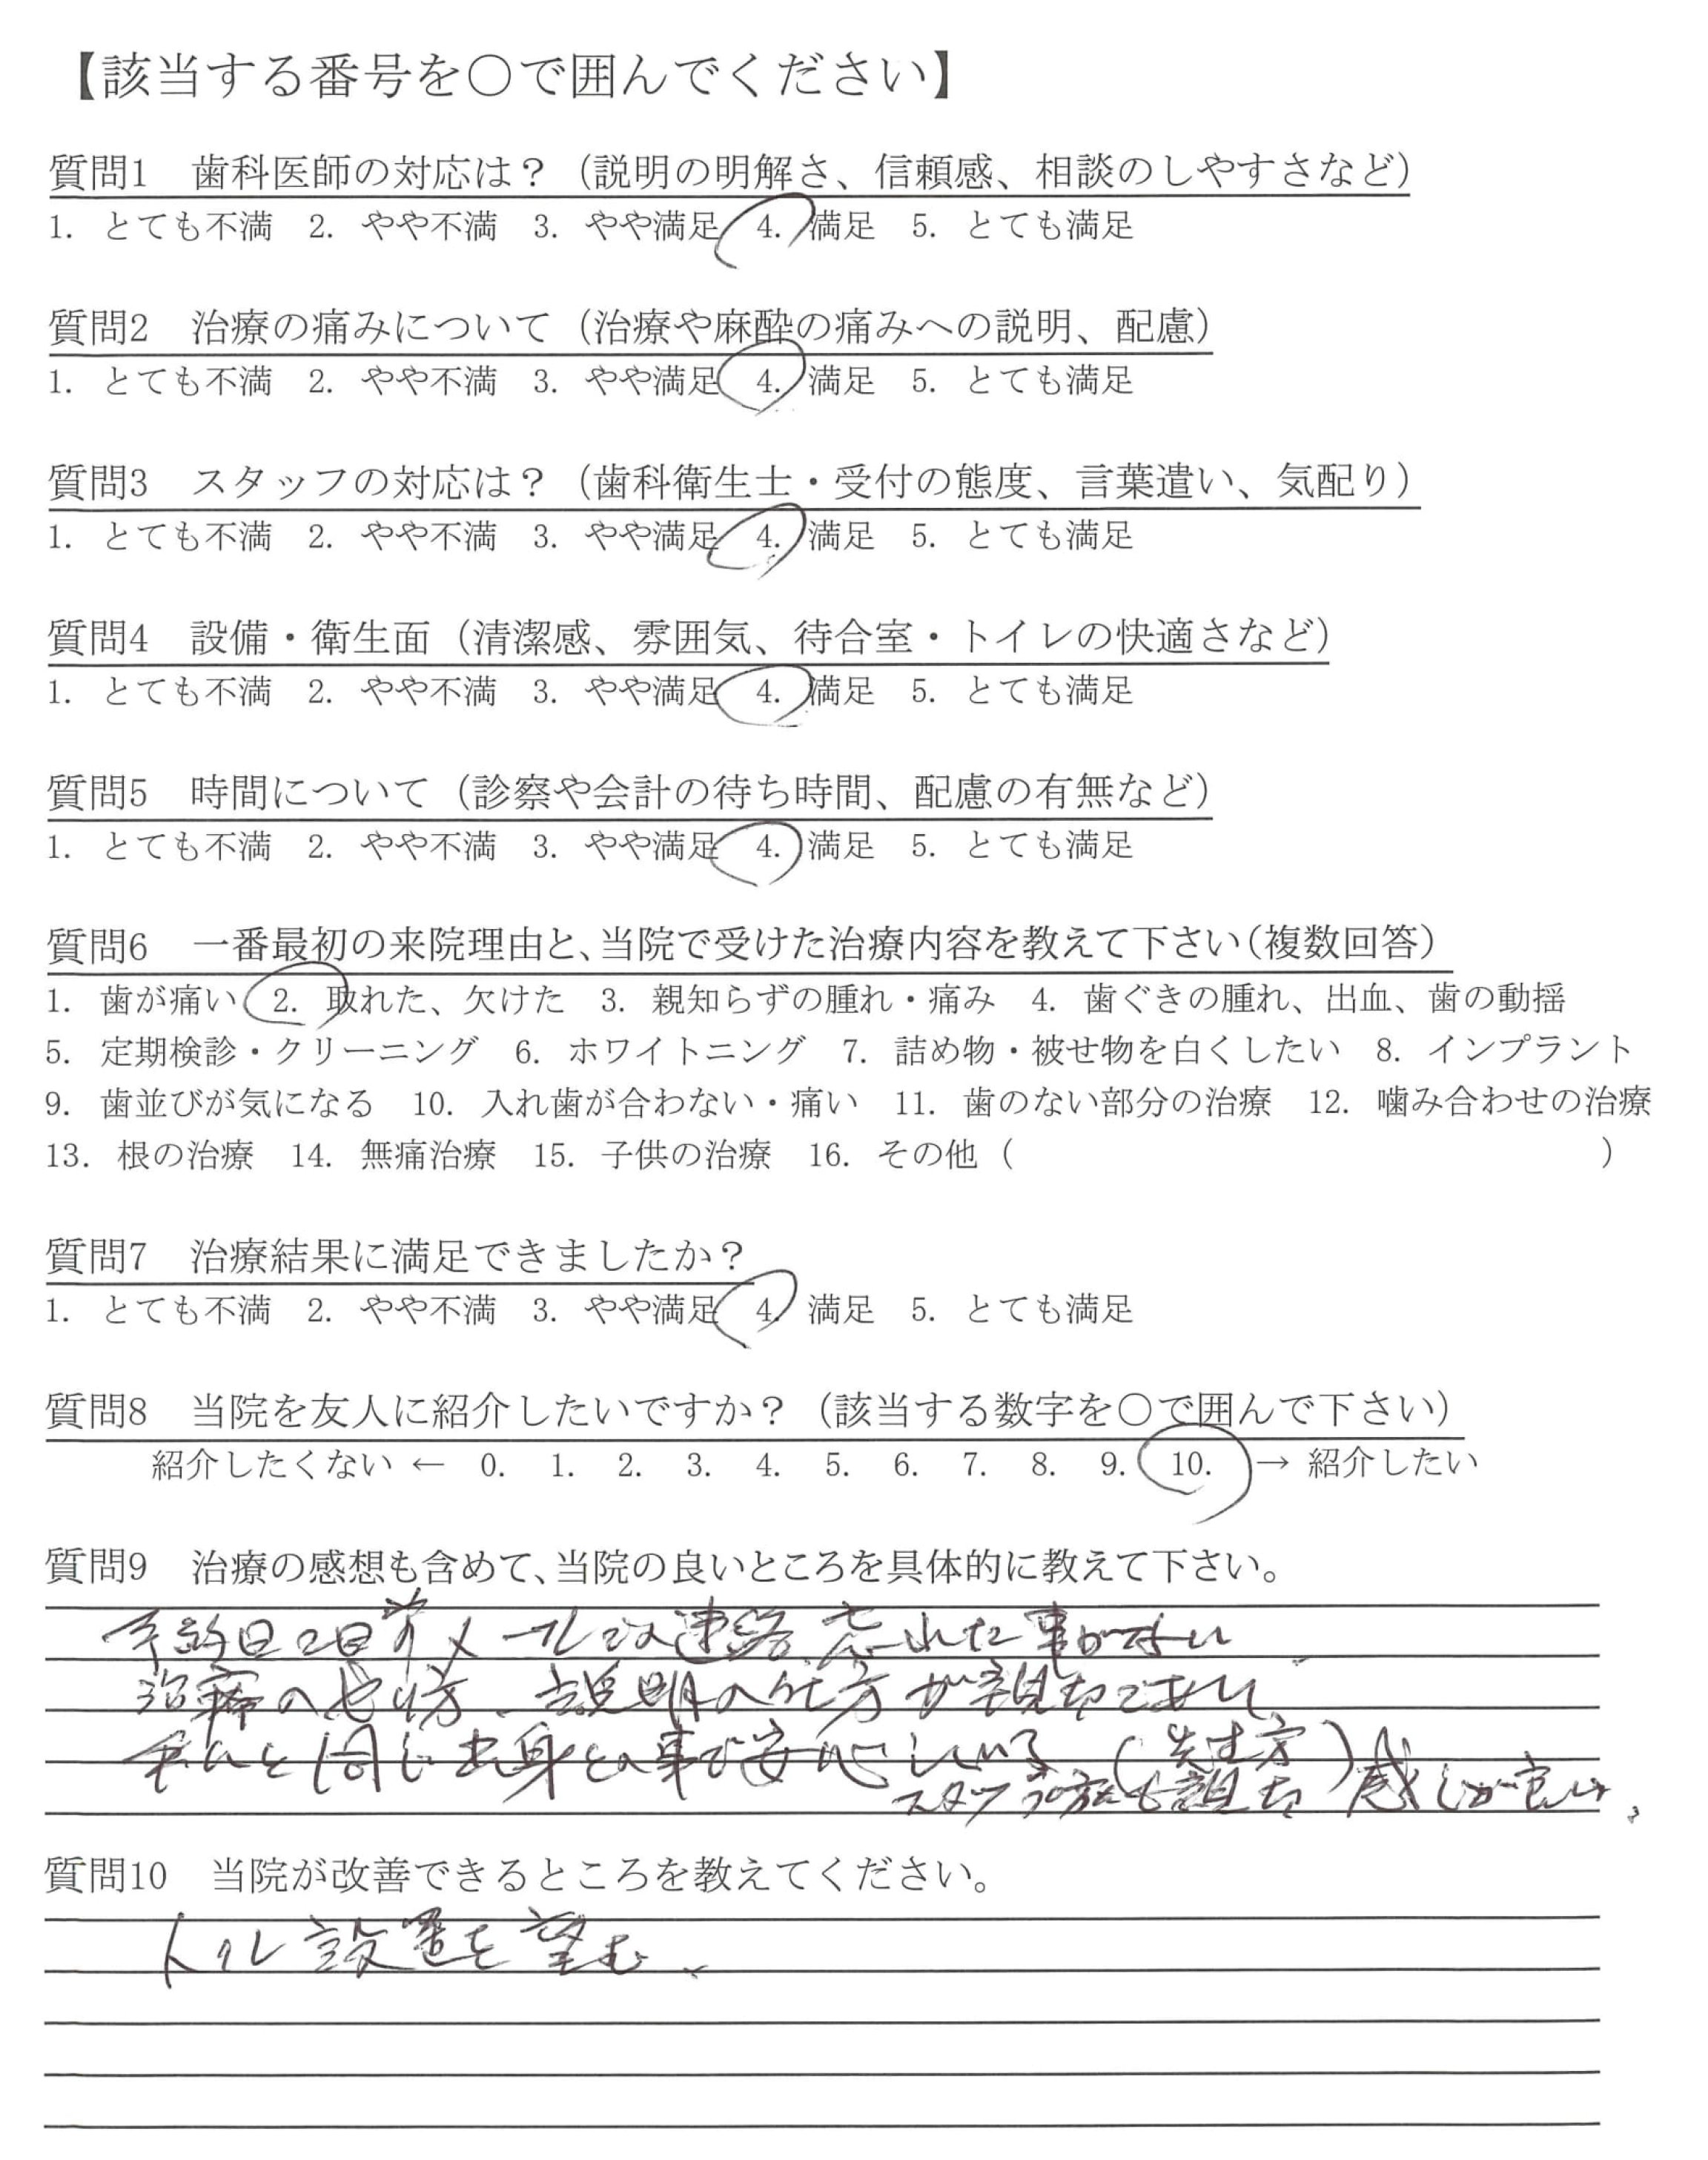 【該当する番号を〇で囲んでください】
質問1　歯科医師の対応は？（説明の明解さ、信頼感、相談のしやすさなど）
1. とても不満　2. やや不満　3. やや満足　4. 満足　5. とても満足
質問2　治療の痛みについて（治療や麻酔の痛みへの説明、配慮）
1. とても不満　2. やや不満　3. やや満足　4. 満足　5. とても満足
質問3　スタッフの対応は？（歯科衛生士・受付の態度、言葉遣い、気配り）
1. とても不満　2. やや不満　3. やや満足　4. 満足　5. とても満足
質問4　設備・衛生面（清潔感、雰囲気、待合室・トイレの快適さなど）
1. とても不満　2. やや不満　3. やや満足　4. 満足　5. とても満足
質問5　時間について（診察や会計の待ち時間、配慮の有無など）
1. とても不満　2. やや不満　3. やや満足　4. 満足　5. とても満足
質問6　一番最初の来院理由と、当院で受けた治療内容を教えて下さい（複数回答）
1. 歯が痛い　2. 取れた、欠けた　3. 親知らずの腫れ・痛み　4. 歯ぐきの腫れ、出血、歯の動揺
5. 定期検診・クリーニング　6. ホワイトニング　7. 詰め物・被せ物を白くしたい　8. インプラント
9. 歯並びが気になる　10. 入れ歯が合わない・痛い　11. 歯のない部分の治療　12. 噛み合わせの治療
13. 根の治療　14. 無痛治療　15. 子供の治療　16. その他（　　　）
質問7　治療結果に満足できましたか？
1. とても不満　2. やや不満　3. やや満足　4. 満足　5. とても満足
質問8　当院を友人に紹介したいですか？（該当する数字を〇で囲んで下さい）
紹介したくない ← 0.　1.　2.　3.　4.　5.　6.　7.　8.　9.　10.　→ 紹介したい
質問9　治療の感想も含めて、当院の良いところを具体的に教えて下さい。
予約日2日前メールでの連絡、忘れた事がない
治療のやり方、説明の仕方が親切
同じ出身との事で安心している（先生方）
スタッフの方も親切 感じが良い。
質問10　当院が改善できるところを教えてください。
トイレ設置を望む、